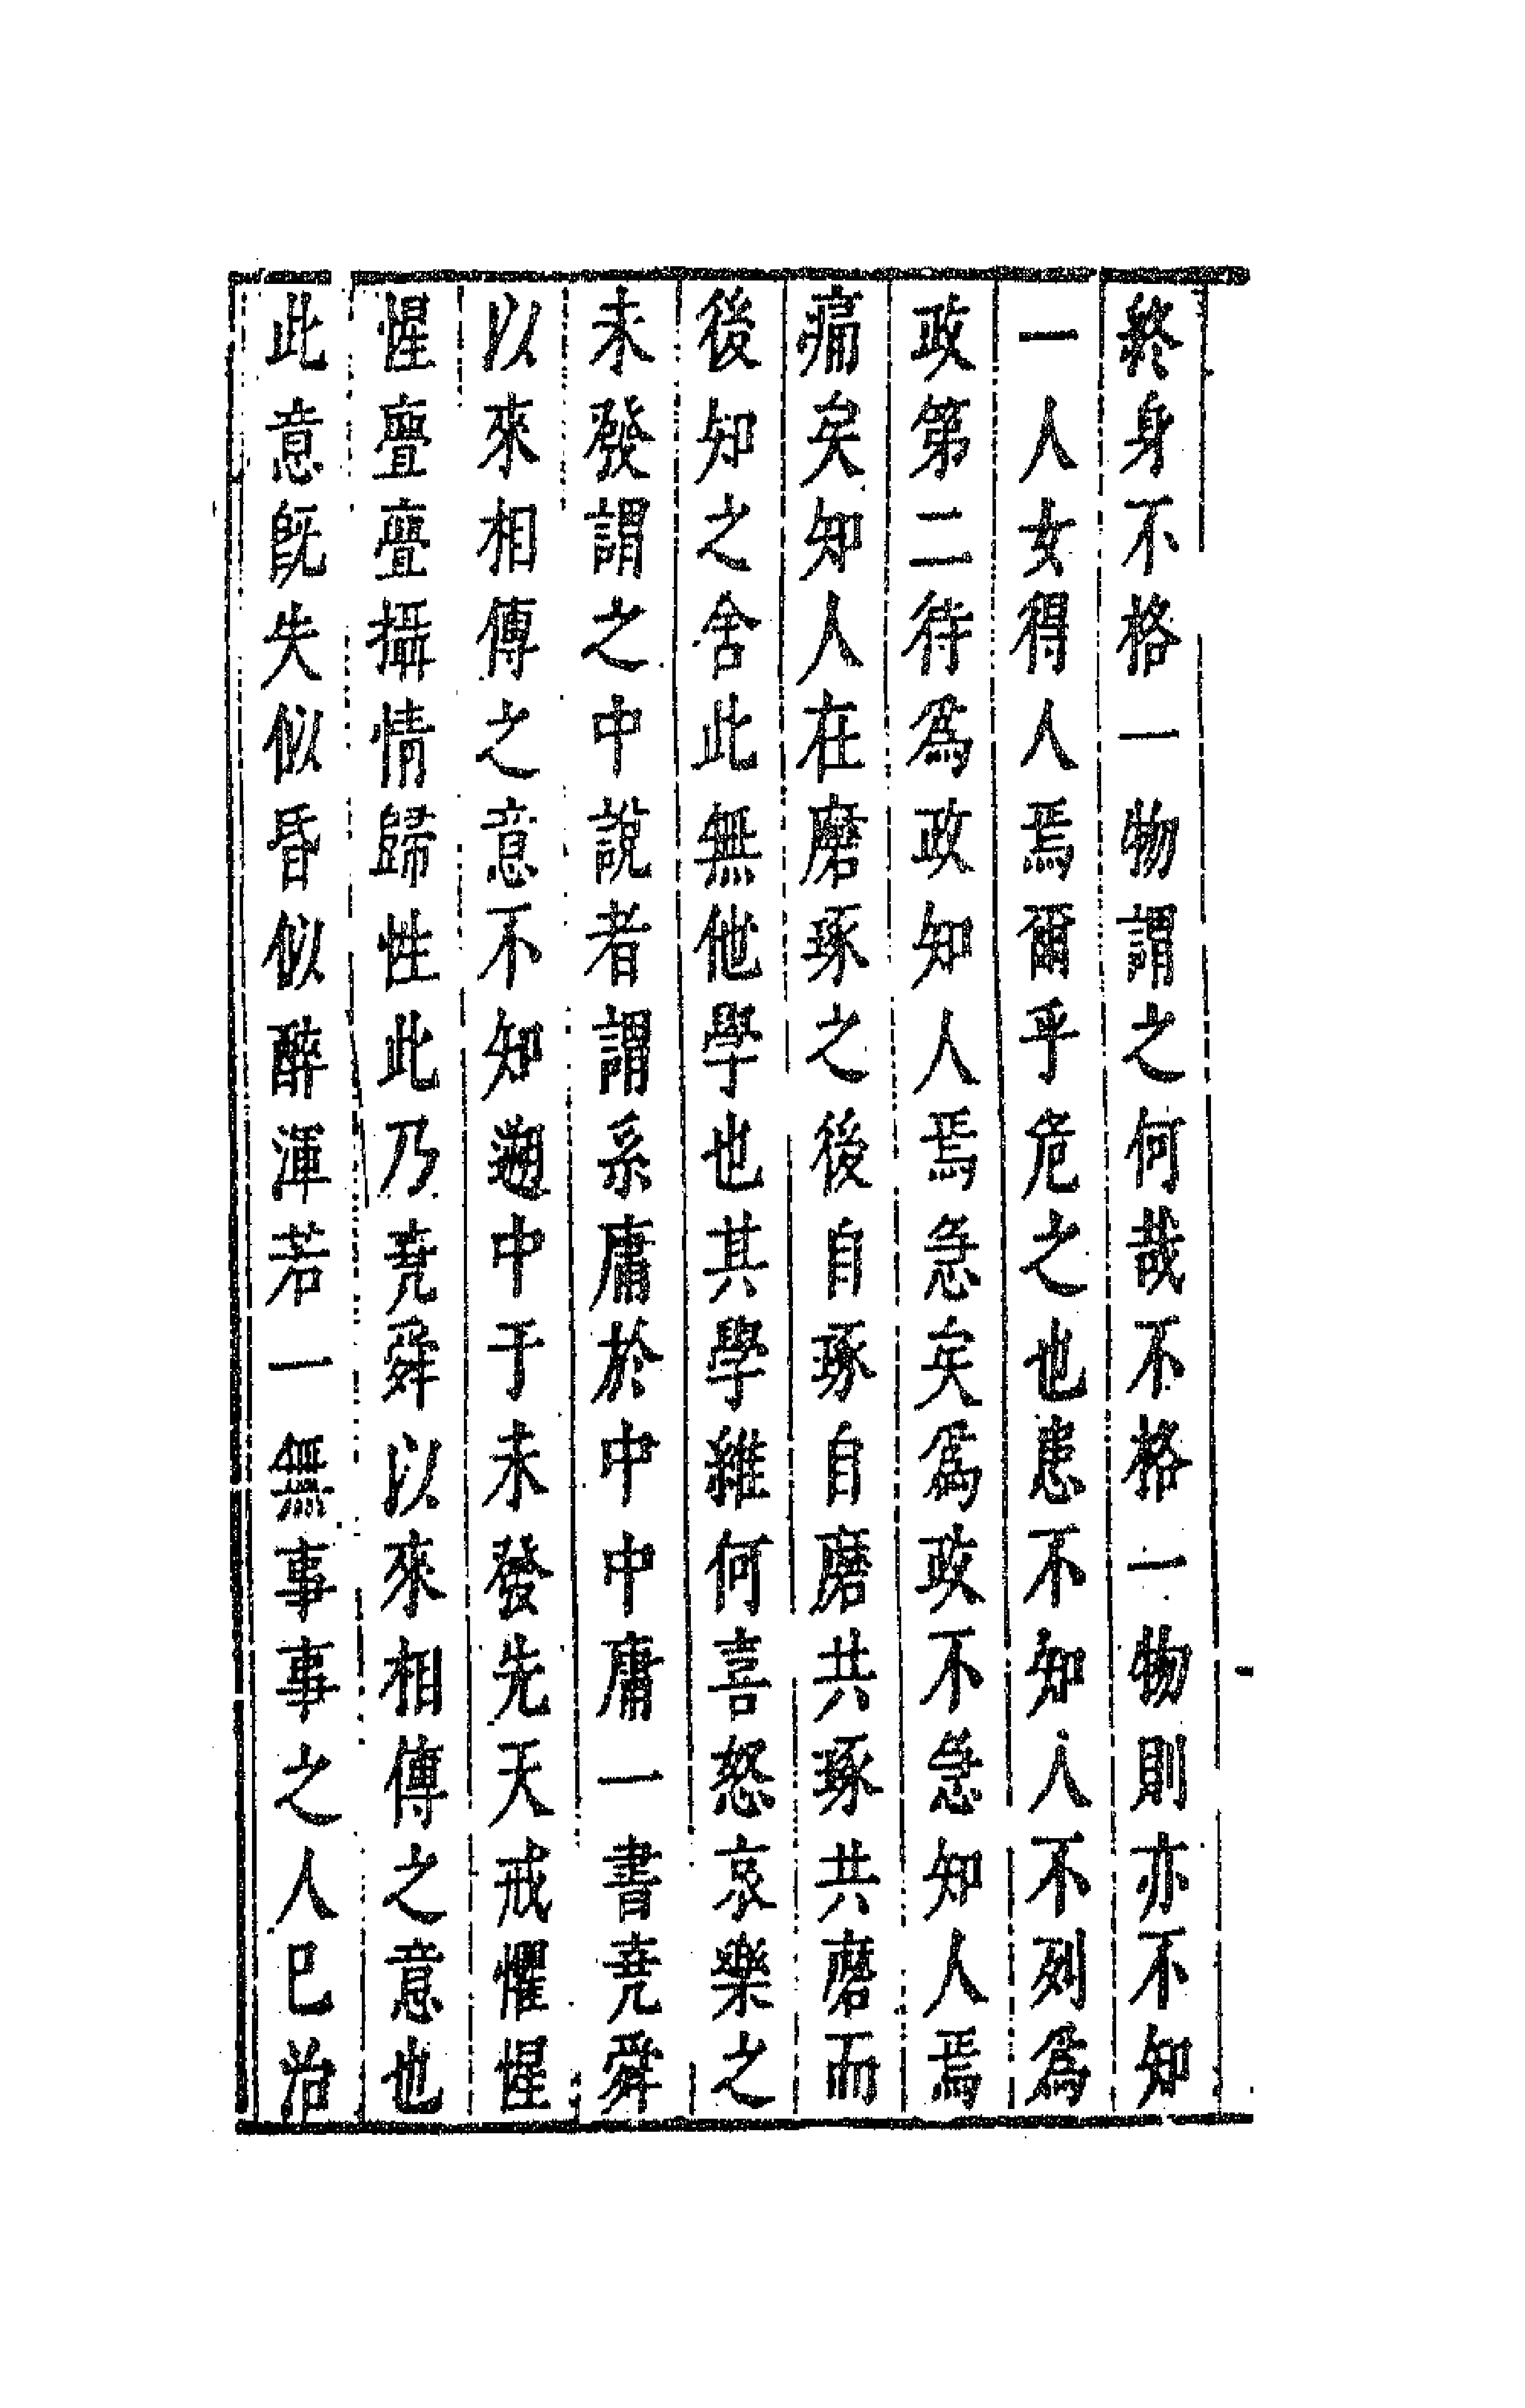 終身不格一物謂之何哉不格一物則亦不知
一人女得人焉爾乎危之也患不知人不列爲
政第二待爲政知人焉急矣爲政不急知人焉
痛矣知人在磨琢之後自琢自磨共琢共磨而
後知之舍此無他學也其學維何喜怒哀樂之
未發謂之中說者謂系庸於中中庸一書堯舜
以來相傳之意不知遡中于未發先天戒懼惺
惺亹亹攝情歸性此乃堯舜以來相傳之意也
此意既失似昏似醉渾若一無事事之人巳治